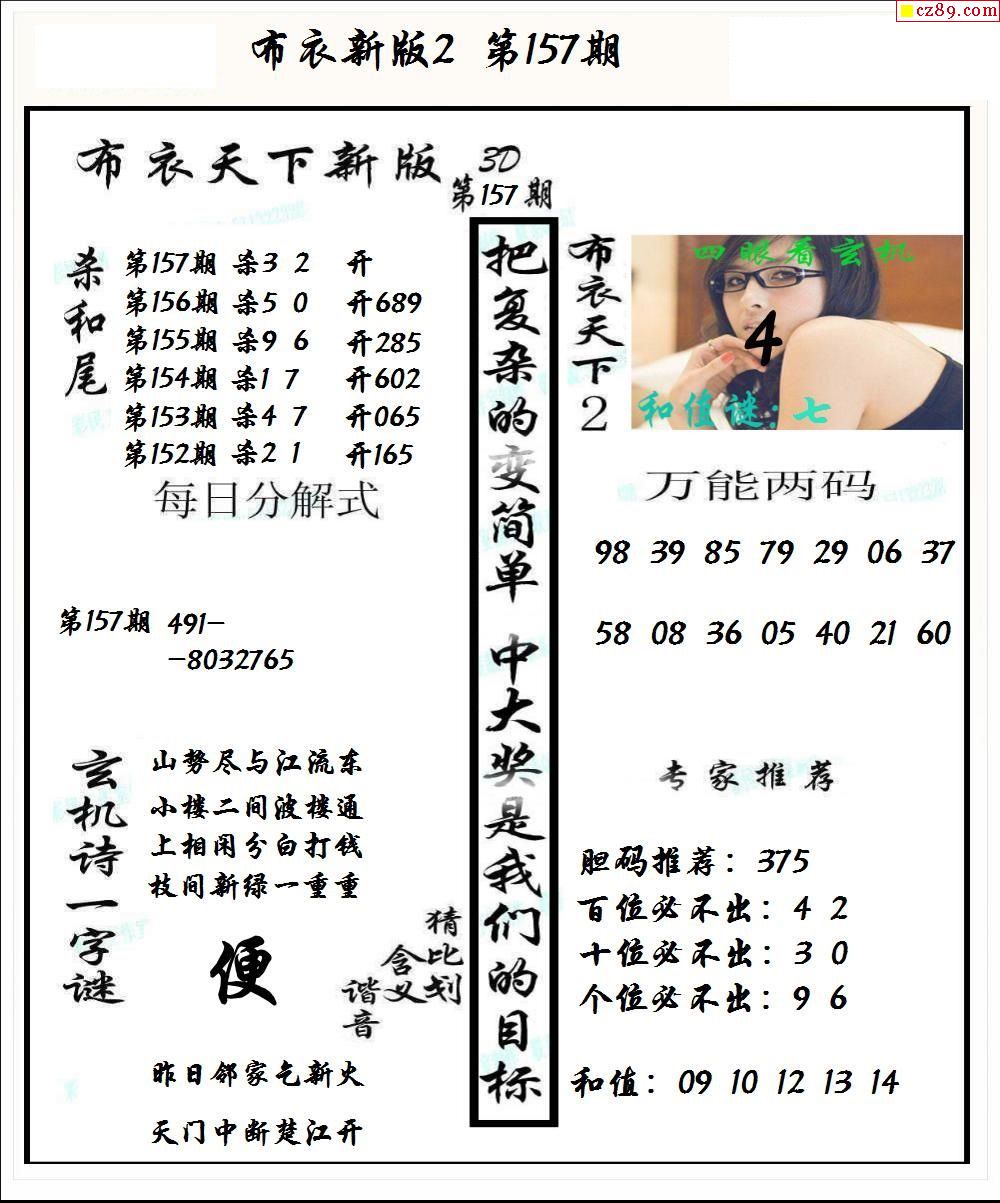 cz89.com
布衣新版2 第157期
布衣天下新版
3D
第157期
杀和尾
第157期 杀3 2 开
第156期 杀5 0 开689
第155期 杀9 6 开285
第154期 杀1 7 开602
第153期 杀4 7 开065
第152期 杀2 1 开165
每日分解式
第157期 491-
-8032765
玄机诗一字谜
山势尽与江流东
小楼二间波楼通
上相闲分白打钱
枝间新绿一重重
便
猜比划
含义
谐音
昨日邻家乞新火
天门中断楚江开
把复杂的变简单 中大奖是我们的目标
布衣天下2
四眼看玄机
4
和值谜:七
万能两码
98 39 85 79 29 06 37
58 08 36 05 40 21 60
专家推荐
胆码推荐：375
百位必不出：4 2
十位必不出：3 0
个位必不出：9 6
和值：09 10 12 13 14